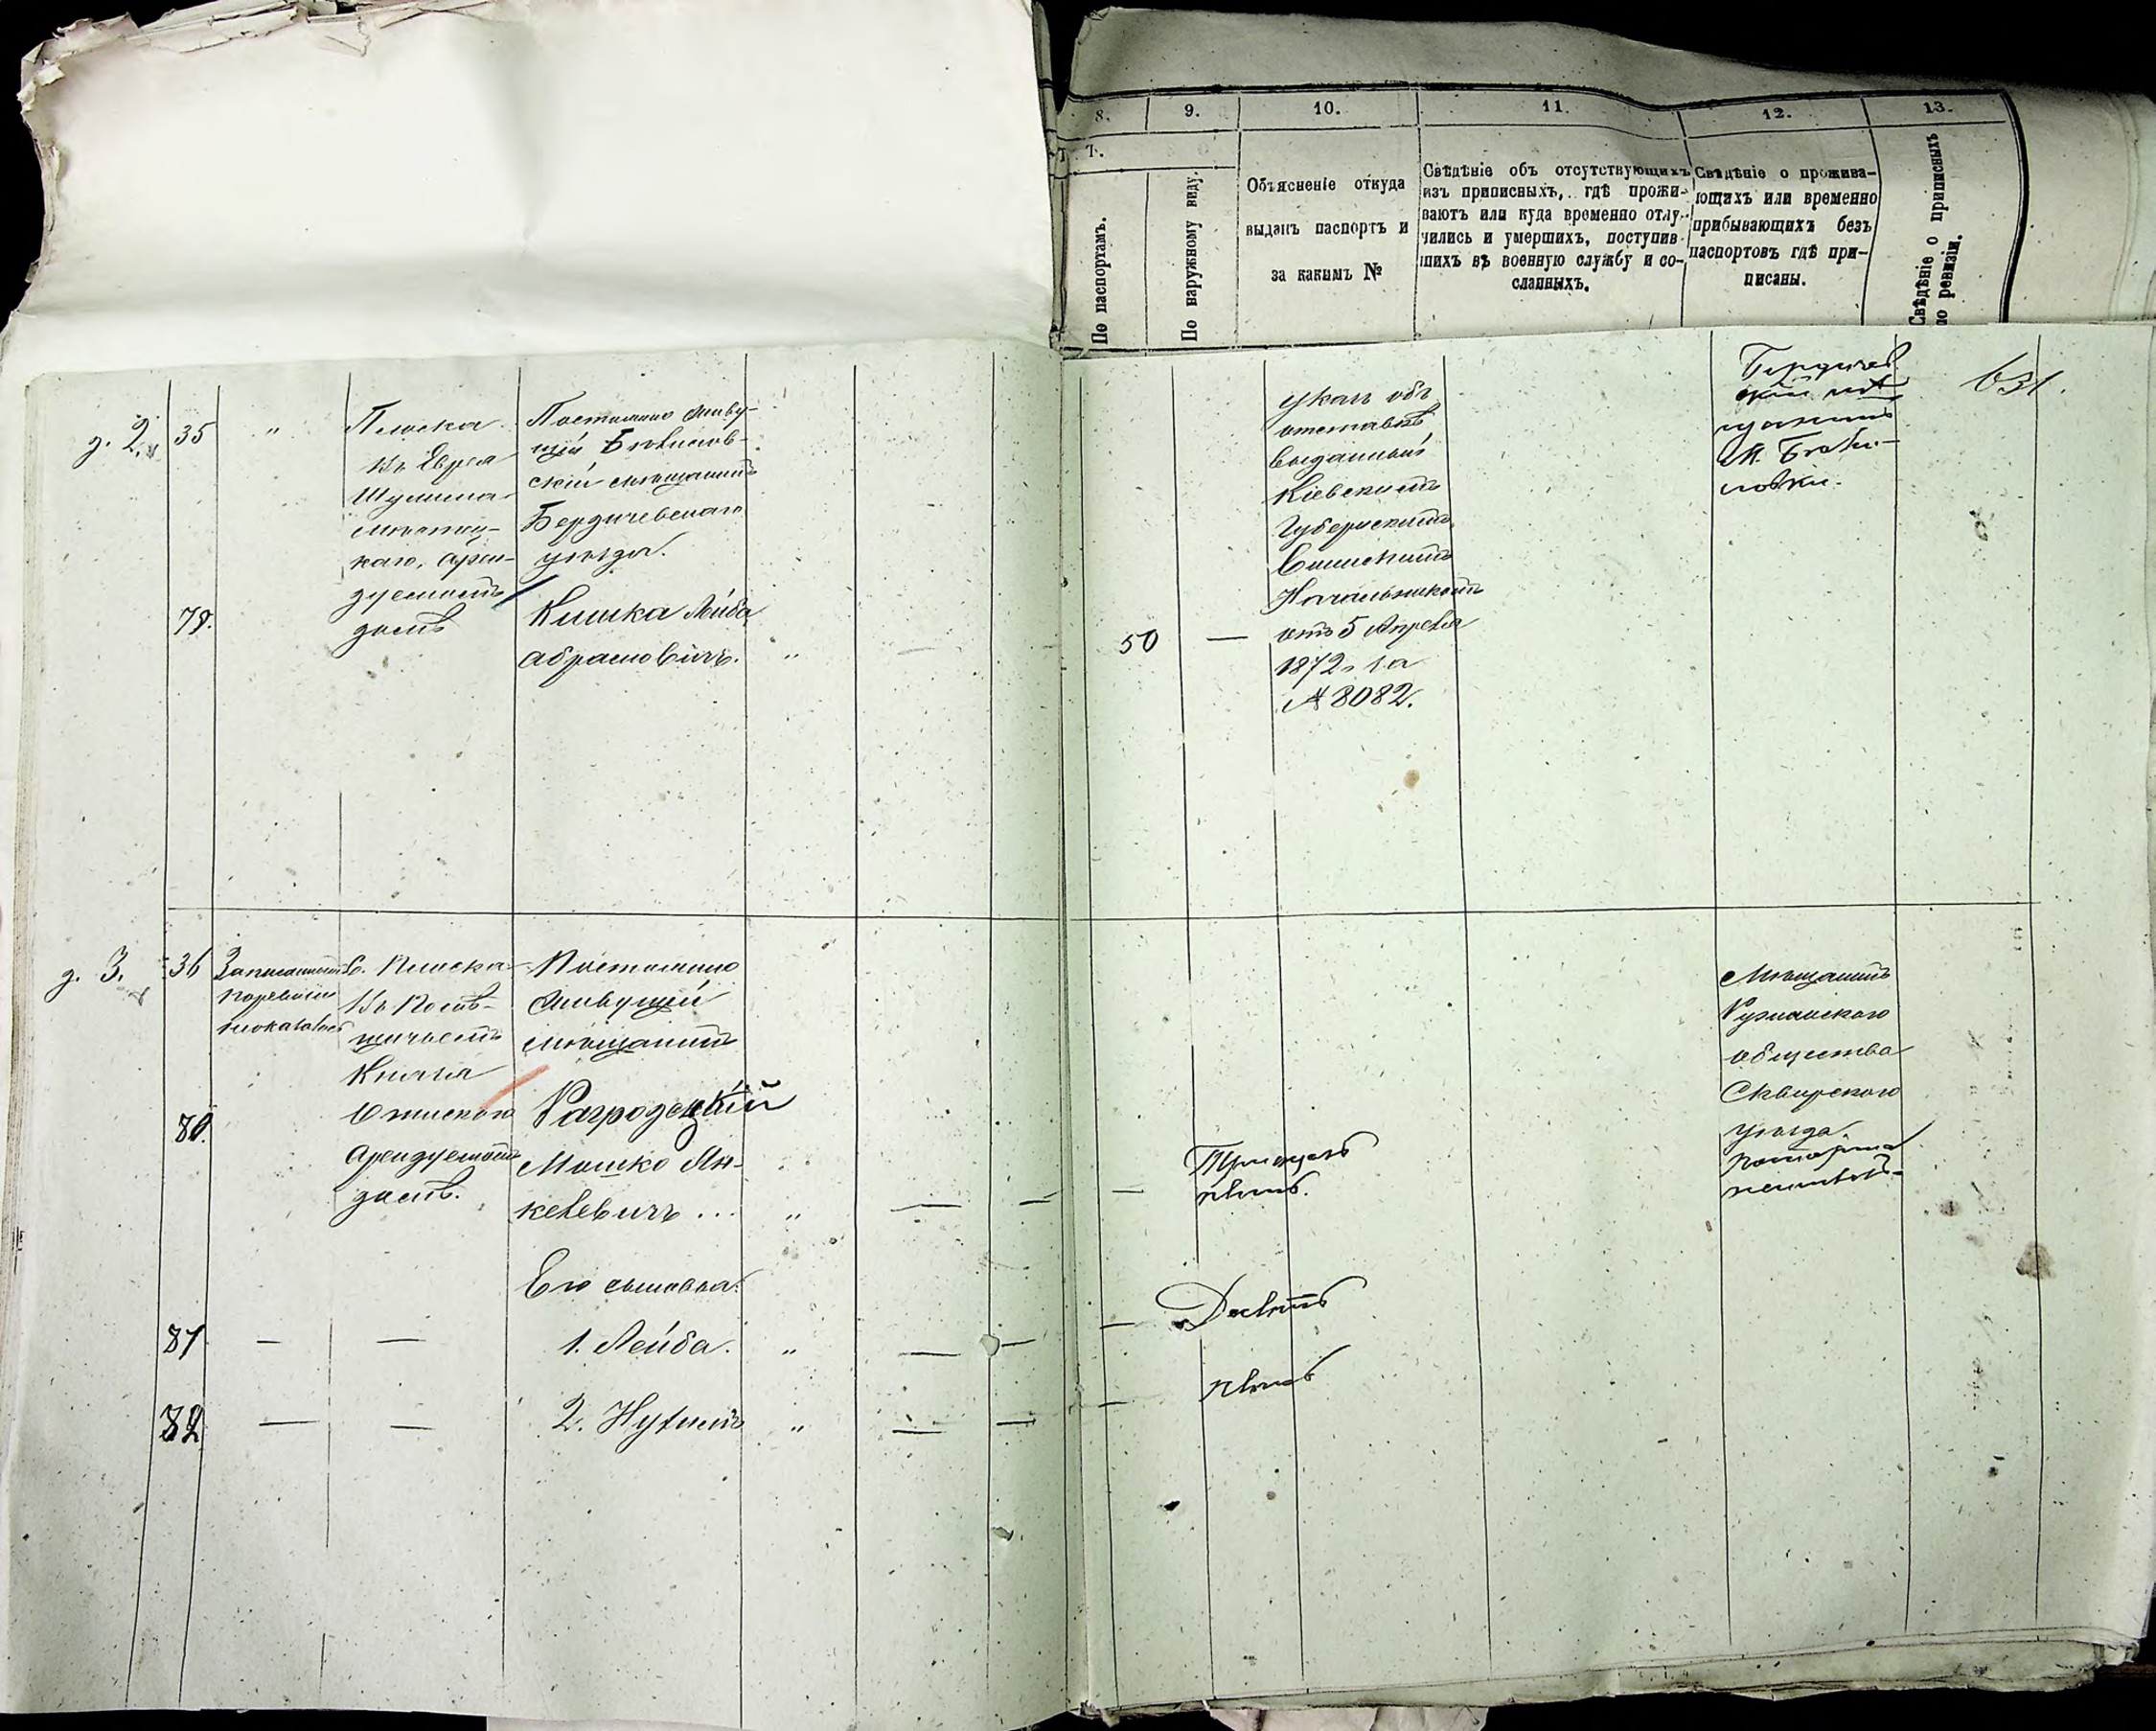 8.
9.
10.
11.
12.
13.
Т.
По паспортамъ.
По наружному виду.
Объясненіе откуда
выданъ паспортъ и
за какимъ №
Свѣдѣніе объ отсутствующихъ
изъ приписныхъ, гдѣ прожи-
ваютъ или куда временно отлу-
чились и умершихъ, поступив-
шихъ въ военную службу и со-
сланныхъ.
Свѣдѣніе о прожива-
ющихъ или временно
прибывающихъ безъ
паспортовъ гдѣ при-
писаны.
Свѣдѣніе о приписныхъ
по ревизіи.
д. 2.
35
"
Плиска
въ Еврея
Шулима
арен-
дуемомъ
домѣ
Постоянно живу-
щій Бѣлилов-
скій мѣщанинъ
Бердичевскаго
уѣзда.
79.
Кишка Лейба
Абрамовичъ.
"
50
—
Указъ объ
отставкѣ
выданный
Кіевскимъ
Губернскимъ
Воинскимъ
Начальникомъ
отъ 5 Апрѣля
1872 за
№ 8082.
Бердичев-
скій мѣ-
щанинъ
М. Бѣли-
ловки.
631.
д. 3.
36
С. Плиска
въ Помѣ-
щичьемъ
Князя
арендуемомъ
домѣ.
Постоянно
живущій
мѣщанинъ
80.
Рагродскій
Мошко Ян-
келевичъ ...
"
Мѣщанинъ
Ружинского
общества
Сквирского
уѣзда
Его сыновья:
87
— —
1. Лейба.
"
Десять
82
— —
2. Нухимъ
"